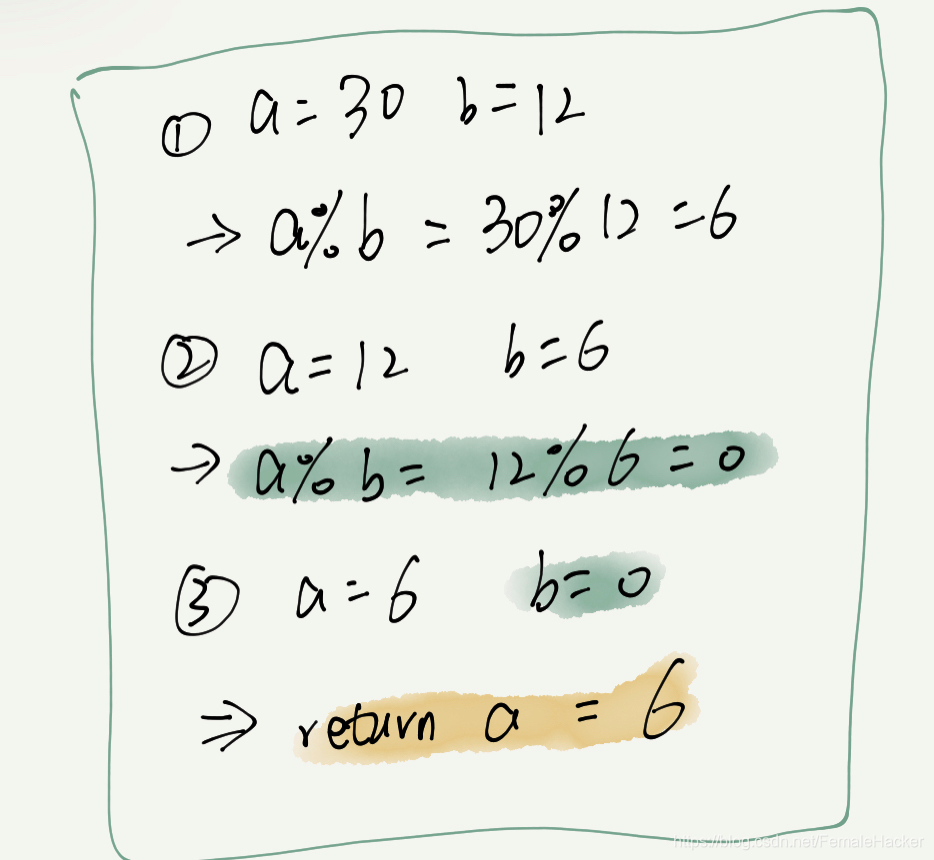 ① a=30 b=12
→ a%b = 30%12 =6
② a=12 b=6
→ a%b= 12%6=0
③ a=6 b=0
⇒ return a = 6
https://blog.csdn.net/FemaleHacker